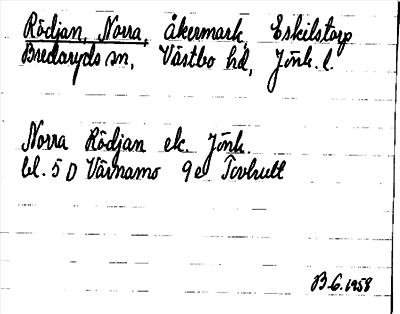 Rödjan, Norra, åkermark, Eskilstorp
Bredaryds sn, Västbo hd, Jönk. l.
Norra Rödjan ek. Jönk.
bl. 5 D Värnamo 9e Torhult
B.G. 1958